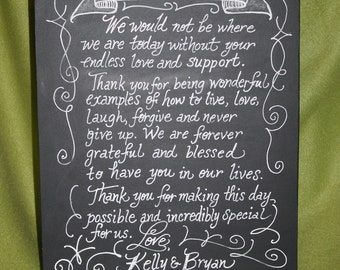 We would not be where
we are today without your
endless love and support.
Thank you for being wonderful
examples of how to live, love,
laugh, forgive and never
give up. We are forever
grateful and blessed
to have you in our lives.
Thank you for making this day
possible and incredibly special
for us. Love,
Kelly & Bryan